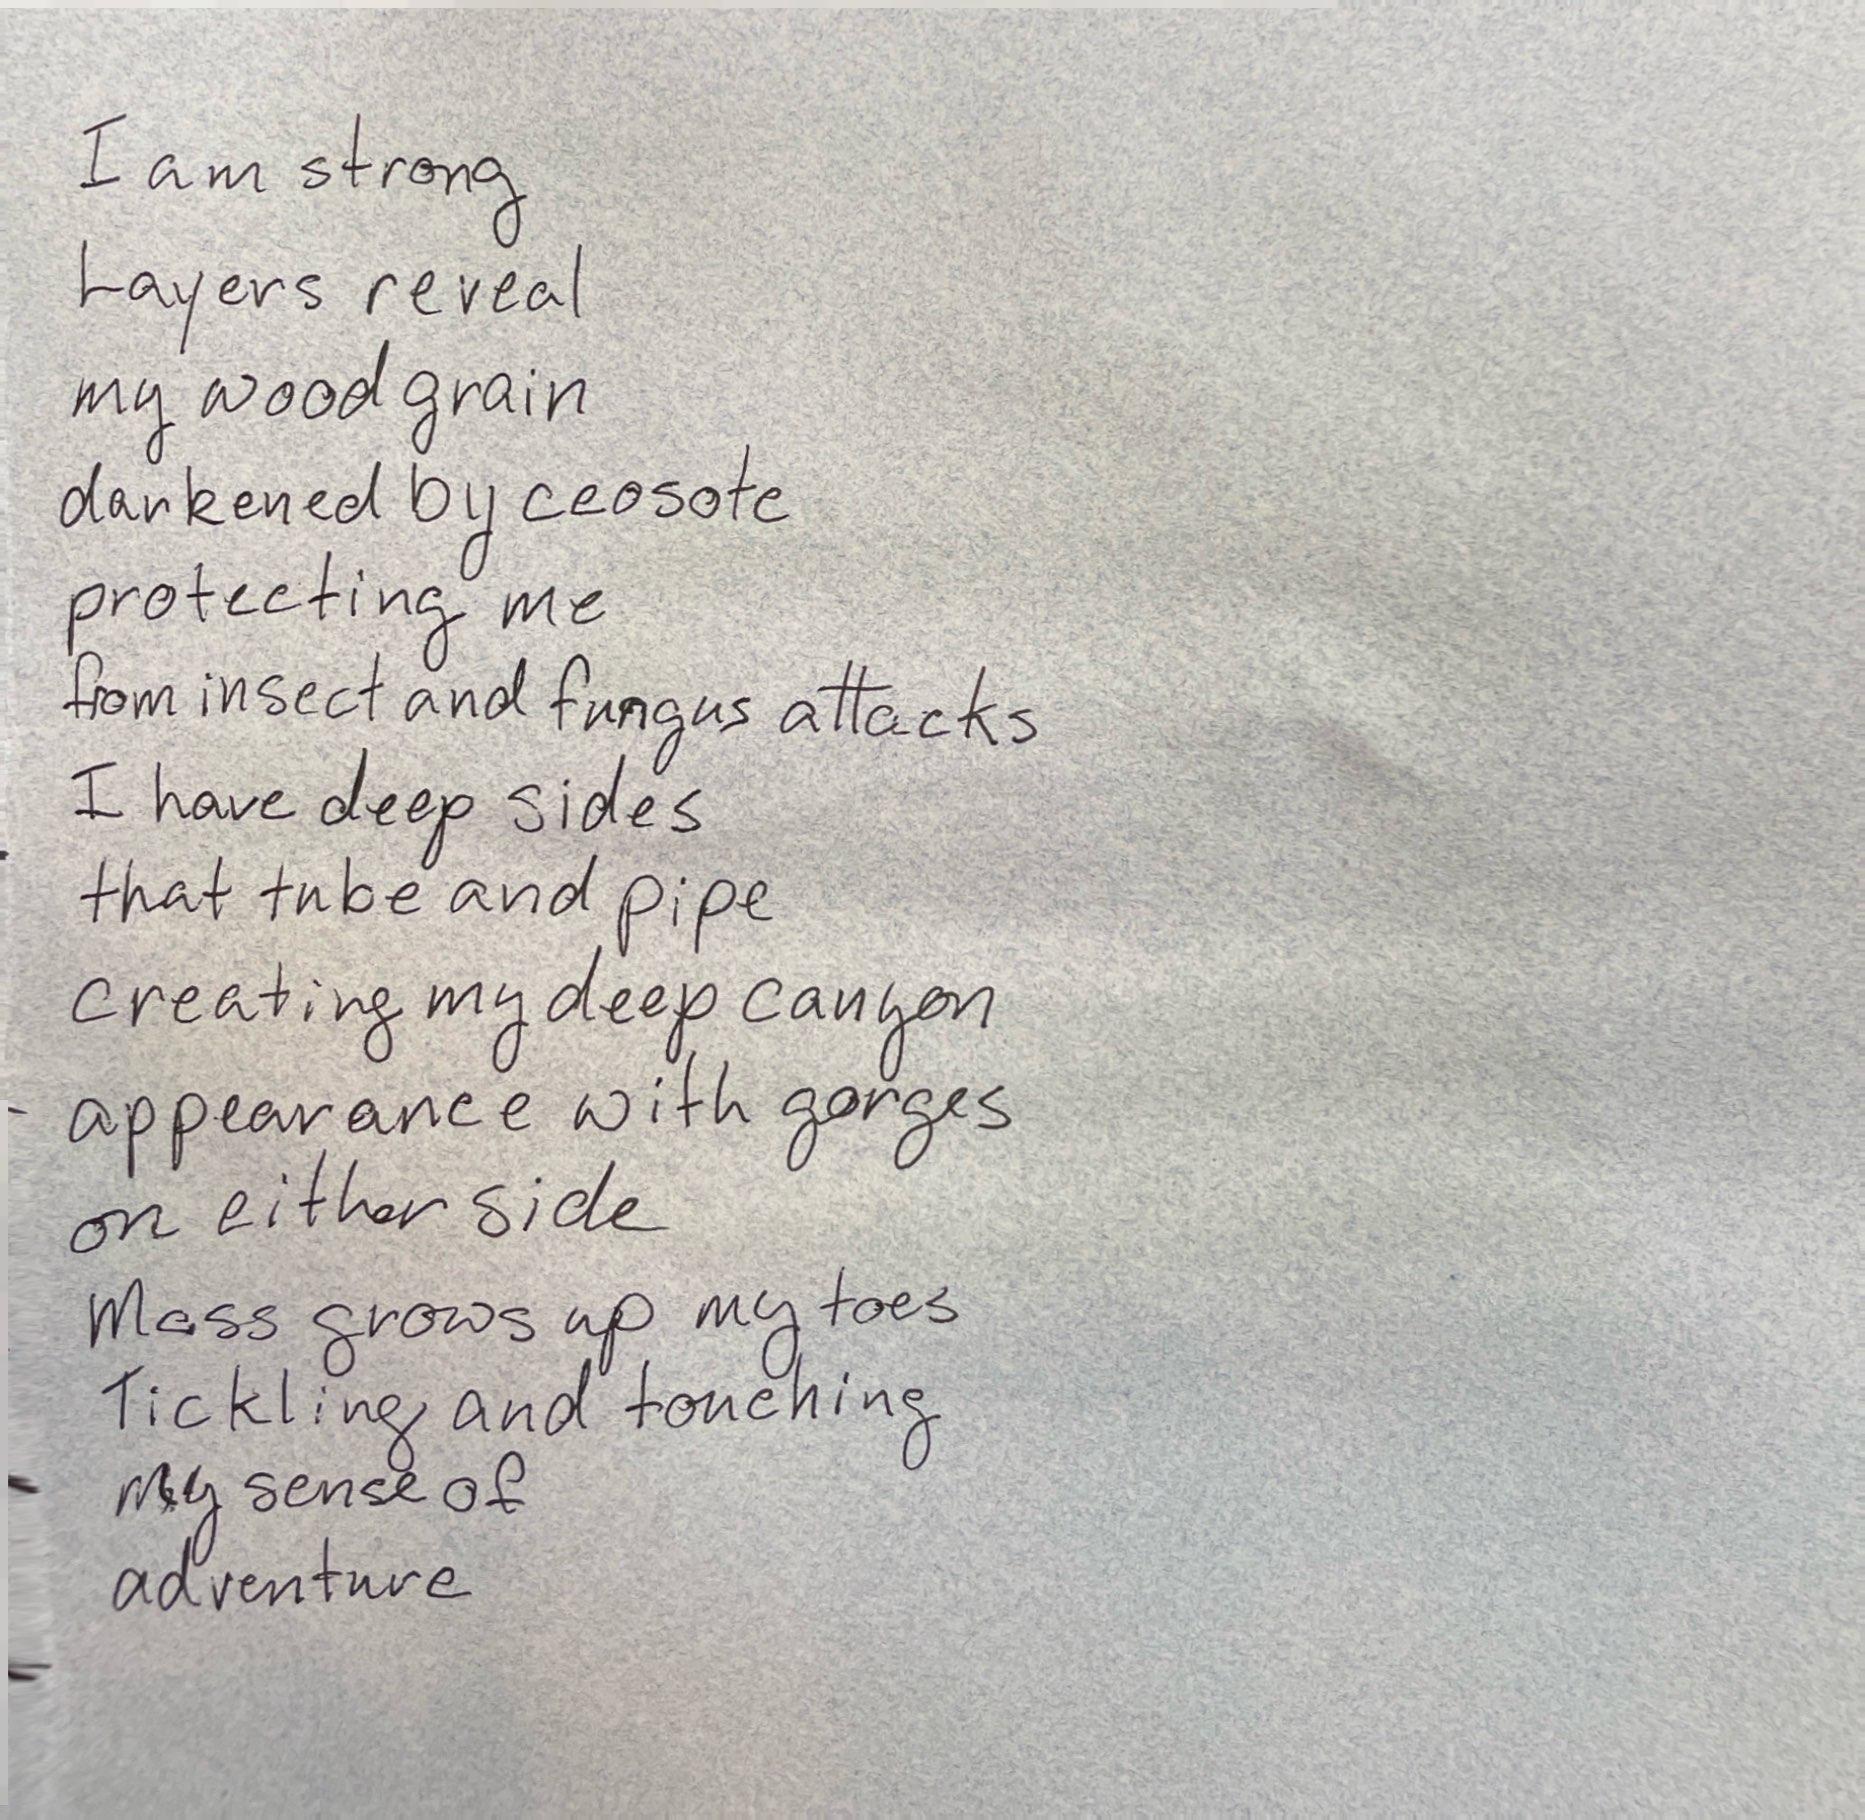 I am strong
Layers reveal
my wood grain
darkened by ceosote
protecting me
from insect and fungus attacks
I have deep sides
that tube and pipe
creating my deep canyon
appearance with gorges
on either side
Moss grows up my toes
Tickling and touching
my sense of
adventure